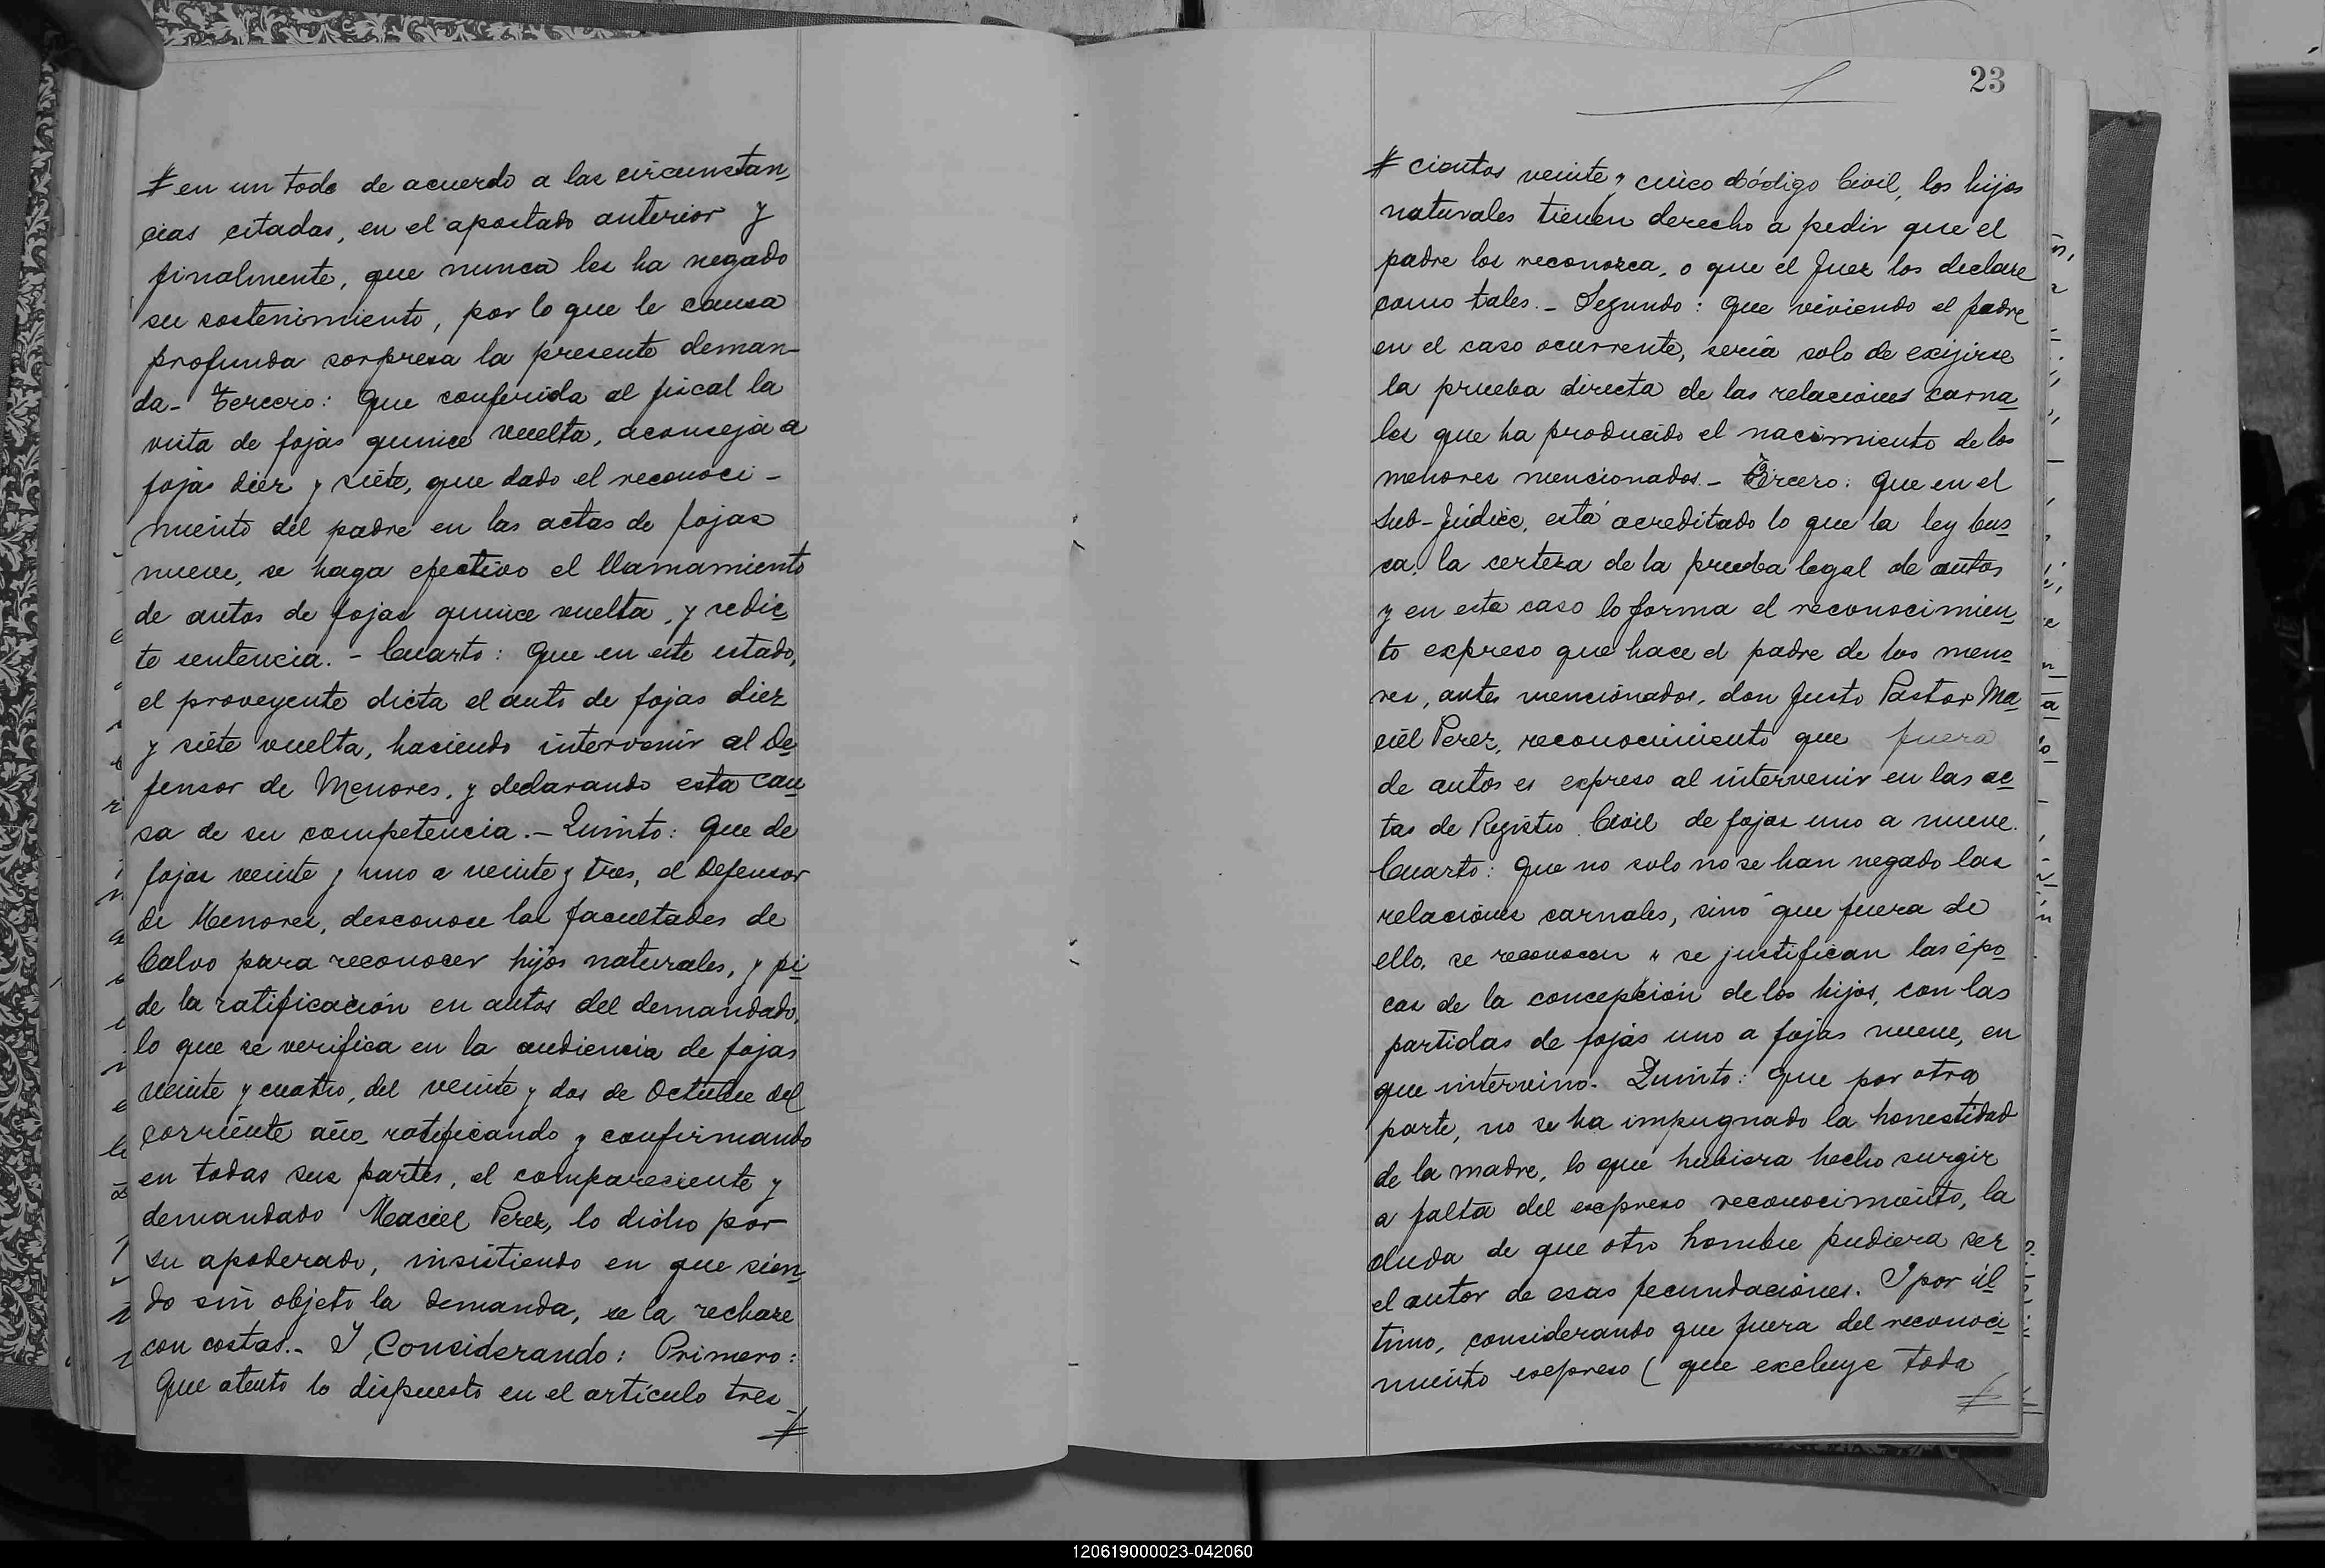 # en un todo de acuerdo a las circunstan
cias citadas, en el apartado anterior y
finalmente, que nunca les ha negado
su sostenimiento, por lo que le causa
profunda sorpresa la presente deman-
da- Tercero: Que conferida al fiscal la
vista de fojas quince vuelta, aconseja a
fojas diez y siete, que dado el reconoci-
miento del padre en las actas de fojas
nueve, se haga efectivo el llamamiento
de autos de fojas quince vuelta, y se dic
te sentencia. - Cuarto: Que en este estado,
el proveyente dicta el auto de fojas diez
y siete vuelta, haciendo intervenir al De
fensor de Menores, y declarando esta cau
sa de su competencia. - Quinto: Que de
fojas veinte y uno a veinte y tres, el Defensor
de Menores, desconoce las facultades de
Calvo para reconocer hijos naturales, y pi
de la ratificación en autos del demandado,
lo que se verifica en la audiencia de fojas
veinte y cuatro, del veinte y dos de Octubre del
corriente año ratificando y confirmando
en todas sus partes, el compareciente y
demandado Maciel Perez, lo dicho por
su apoderado, insistiendo en que sien
do sin objeto la demanda, se la rechaze
con costas.- I Considerando: Primero:
Que atento lo dispuesto en el artículo tres
#
23
# cientos veinte y cinco Código Civil, los hijos
naturales tienen derecho a pedir que el
padre los reconozca, o que el Juez los declare
como tales. - Segundo: Que viviendo el padre
en el caso ocurrente, sería solo de exijirse
la prueba directa de las relaciones carna
les que ha producido el nacimiento de los
menores mencionados. - Tercero: Que en el
Sub-Júdice, está acreditado lo que la ley bus
ca, la certeza de la prueba legal de autos
y en este caso lo forma el reconocimien
to expreso que hace el padre de los meno
res, antes mencionados, don Justo Pastor Ma
ciel Perez, reconocimiento que fuera
de autos es expreso al intervenir en las ac
tas de Registro Civil de fojas uno a nueve.
Cuarto: Que no solo no se han negado las
relaciones carnales, sino que fuera de
ello, se reconocen y se justifican las épo
cas de la concepción de los hijos, con las
partidas de fojas uno a fojas nueve, en
que intervino. Quinto: Que por otra
parte, no se ha impugnado la honestidad
de la madre, lo que hubiera hecho surgir
a falta del expreso reconocimiento, la
duda de que otro hombre pudiera ser
el autor de esas fecundaciones. I por úl
timo, considerando que fuera del reconoci
miento expreso ( que excluye toda
#
120619000023-042060